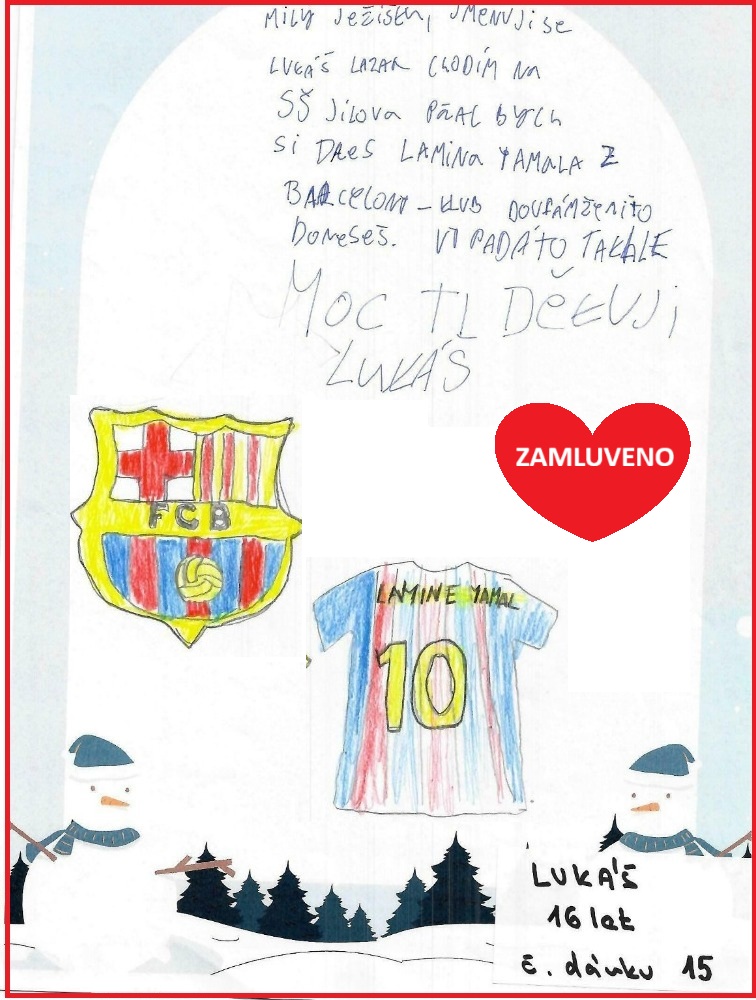 MILÝ JEŽÍŠKU, JMENUJI SE
LUKÁŠ LAZAR CHODÍM NA
SŠ JÍLOVÁ PŘÁL BYCH
SI DRES LAMINA YAMALA Z
BARCELONY – KLUB DOUFÁM ŽE MI TO
DONESEŠ. VYPADÁ TO TAKHLE
MOC TI DĚKUJI
LUKÁŠ
ZAMLUVENO
FCB
LAMINE YAMAL
10
LUKÁŠ
16 let
č. dárku 15